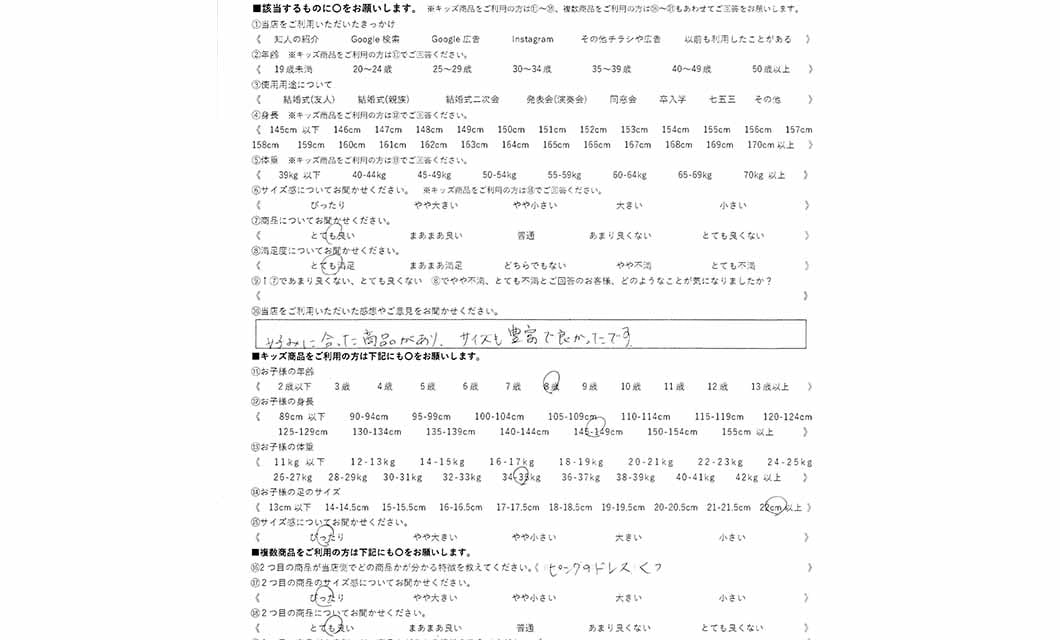 ■該当するものに〇をお願いします。 ※キッズ商品をご利用の方は⑪～⑮、複数商品をご利用の方は⑯～㉑もあわせてご回答をお願いします。
①当店をご利用いただいたきっかけ
《 知人の紹介 Google 検索 Google 広告 Instagram その他チラシや広告 以前も利用したことがある 》
②年齢 ※キッズ商品をご利用の方は⑪でご回答ください。
《 19歳未満 20～24歳 25～29歳 30～34歳 35～39歳 40～49歳 50歳以上 》
③使用用途について
《 結婚式(友人) 結婚式(親族) 結婚式二次会 発表会(演奏会) 同窓会 卒入学 七五三 その他 》
④身長 ※キッズ商品をご利用の方は⑫でご回答ください。
《 145cm 以下 146cm 147cm 148cm 149cm 150cm 151cm 152cm 153cm 154cm 155cm 156cm 157cm
158cm 159cm 160cm 161cm 162cm 163cm 164cm 165cm 166cm 167cm 168cm 169cm 170cm以上 》
⑤体重 ※キッズ商品をご利用の方は⑬でご回答ください。
《 39kg 以下 40-44kg 45-49kg 50-54kg 55-59kg 60-64kg 65-69kg 70kg 以上 》
⑥サイズ感についてお聞かせください。 ※キッズ商品をご利用の方は⑮でご回答ください。
《 ぴったり やや大きい やや小さい 大きい 小さい 》
⑦商品についてお聞かせください。
《 とても良い まあまあ良い 普通 あまり良くない とても良くない 》
⑧満足度についてお聞かせください。
《 とても満足 まあまあ満足 どちらでもない やや不満 とても不満 》
⑨↑⑦であまり良くない、とても良くない ⑧でやや不満、とても不満とご回答のお客様、どのようなことが気になりましたか？
《 》
⑩当店をご利用いただいた感想やご意見をお聞かせください。
好みに合った商品があり、サイズも豊富で良かったです
■キッズ商品をご利用の方は下記にも〇をお願いします。
⑪お子様の年齢
《 2歳以下 3歳 4歳 5歳 6歳 7歳 8歳 9歳 10歳 11歳 12歳 13歳以上 》
⑫お子様の身長
《 89cm 以下 90-94cm 95-99cm 100-104cm 105-109cm 110-114cm 115-119cm 120-124cm
125-129cm 130-134cm 135-139cm 140-144cm 145-149cm 150-154cm 155cm 以上 》
⑬お子様の体重
《 11kg 以下 12-13kg 14-15kg 16-17kg 18-19kg 20-21kg 22-23kg 24-25kg
26-27kg 28-29kg 30-31kg 32-33kg 34-35kg 36-37kg 38-39kg 40-41kg 42kg 以上 》
⑭お子様の足のサイズ
《 13cm以下 14-14.5cm 15-15.5cm 16-16.5cm 17-17.5cm 18-18.5cm 19-19.5cm 20-20.5cm 21-21.5cm 22cm以上 》
⑮サイズ感についてお聞かせください。
《 ぴったり やや大きい やや小さい 大きい 小さい 》
■複数商品をご利用の方は下記にも〇をお願いします。
⑯2つ目の商品が当店でどの商品かが分かる特徴を教えてください。《 ピンクのドレス くつ 》
⑰2つ目の商品のサイズ感についてお聞かせください。
《 ぴったり やや大きい やや小さい 大きい 小さい 》
⑱2つ目の商品についてお聞かせください。
《 とても良い まあまあ良い 普通 あまり良くない とても良くない 》